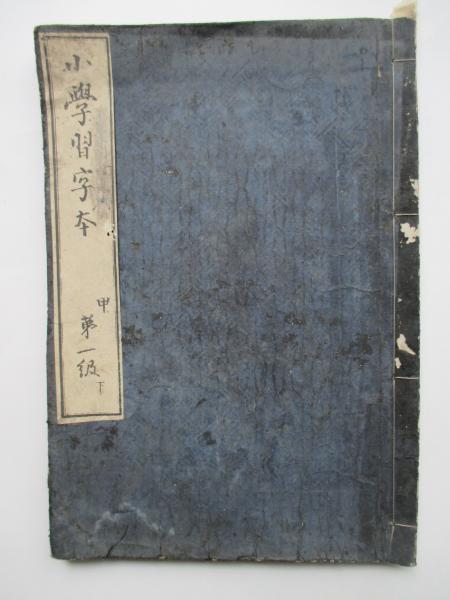 小學習字本
甲
第一級
下